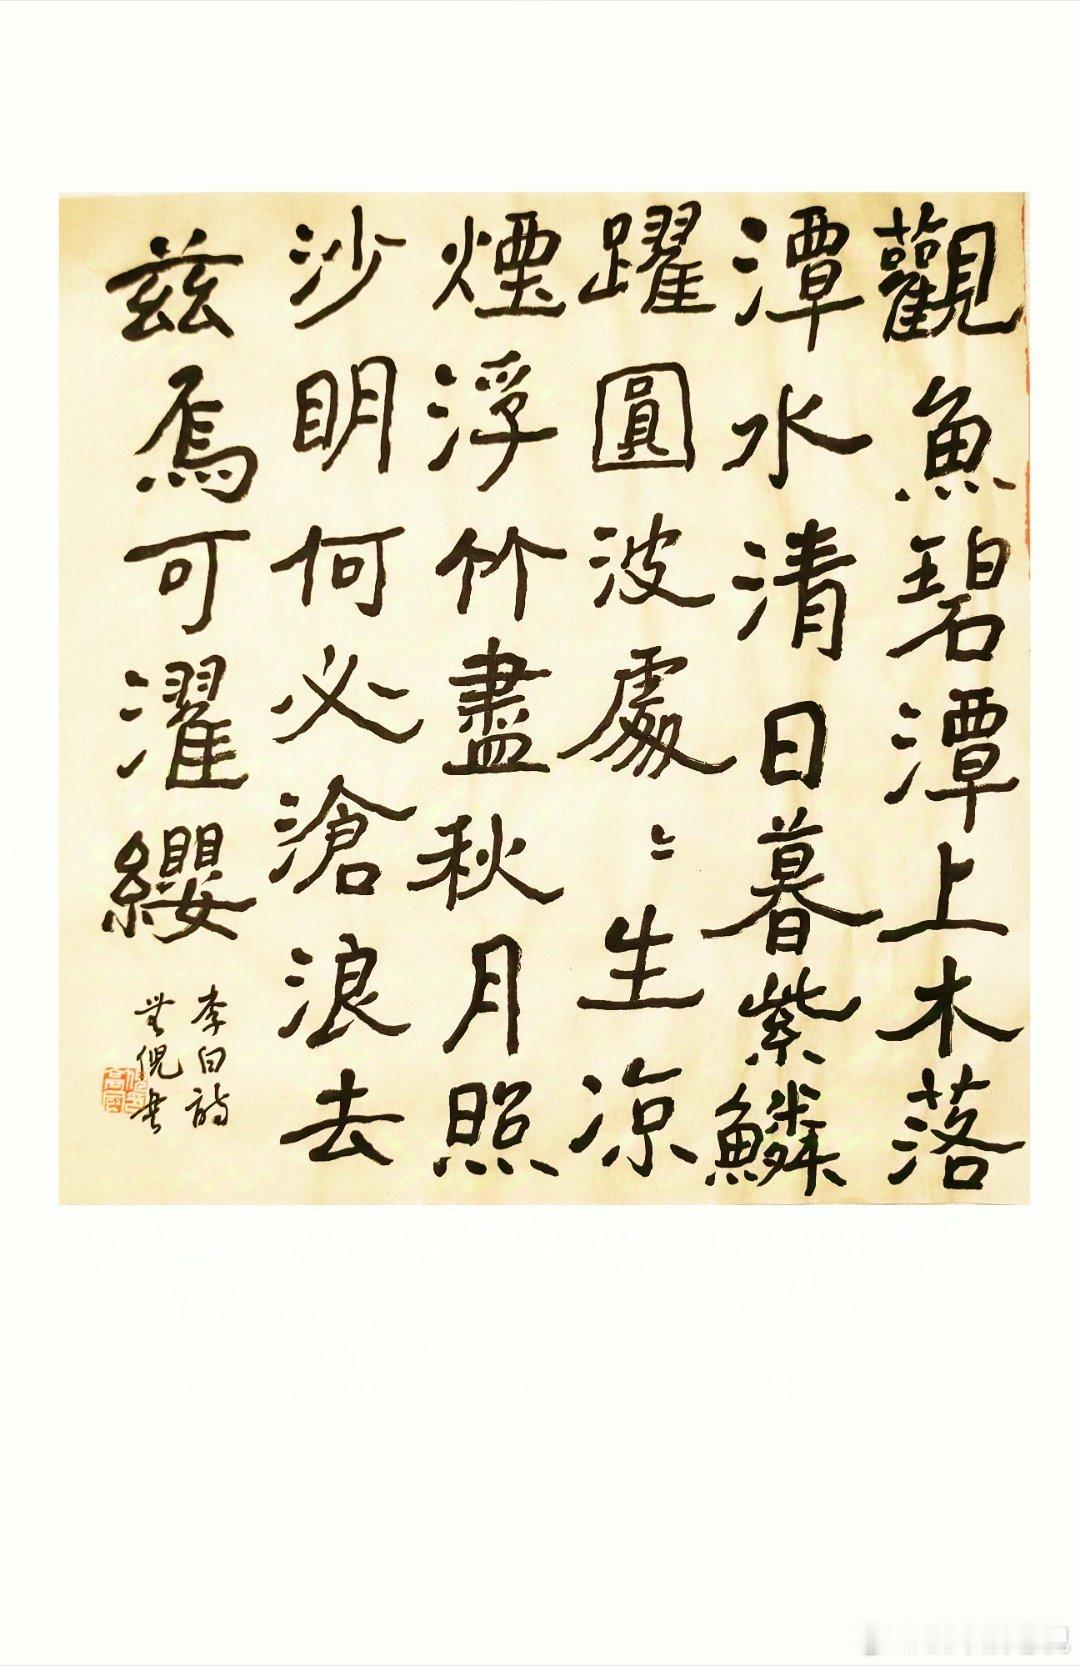 觀魚碧潭上木落
潭水清日暮紫鱗
躍圓波處〻生凉
煙浮竹盡秋月照
沙明何必滄浪去
兹焉可濯纓
李白詩
無倪書